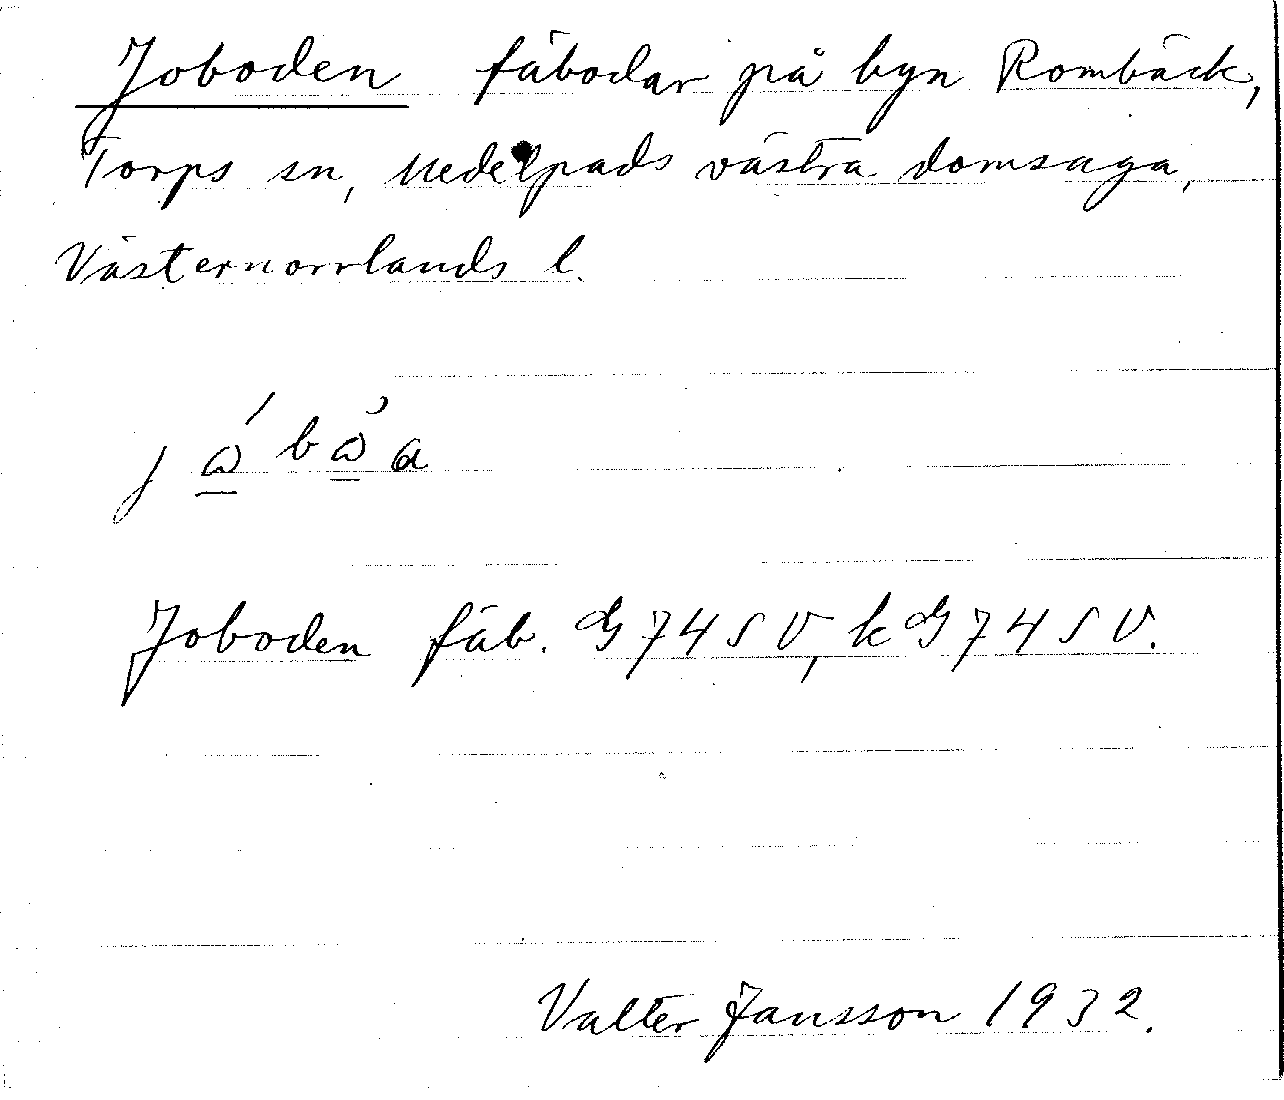 Joboden fäbodar på byn Rombäck,
Torps sn, Medelpads västra domsaga,
Västernorrlands l.
Joboden fäb. G 74 SV, k G 74 SV.
Valter Jansson 1932.